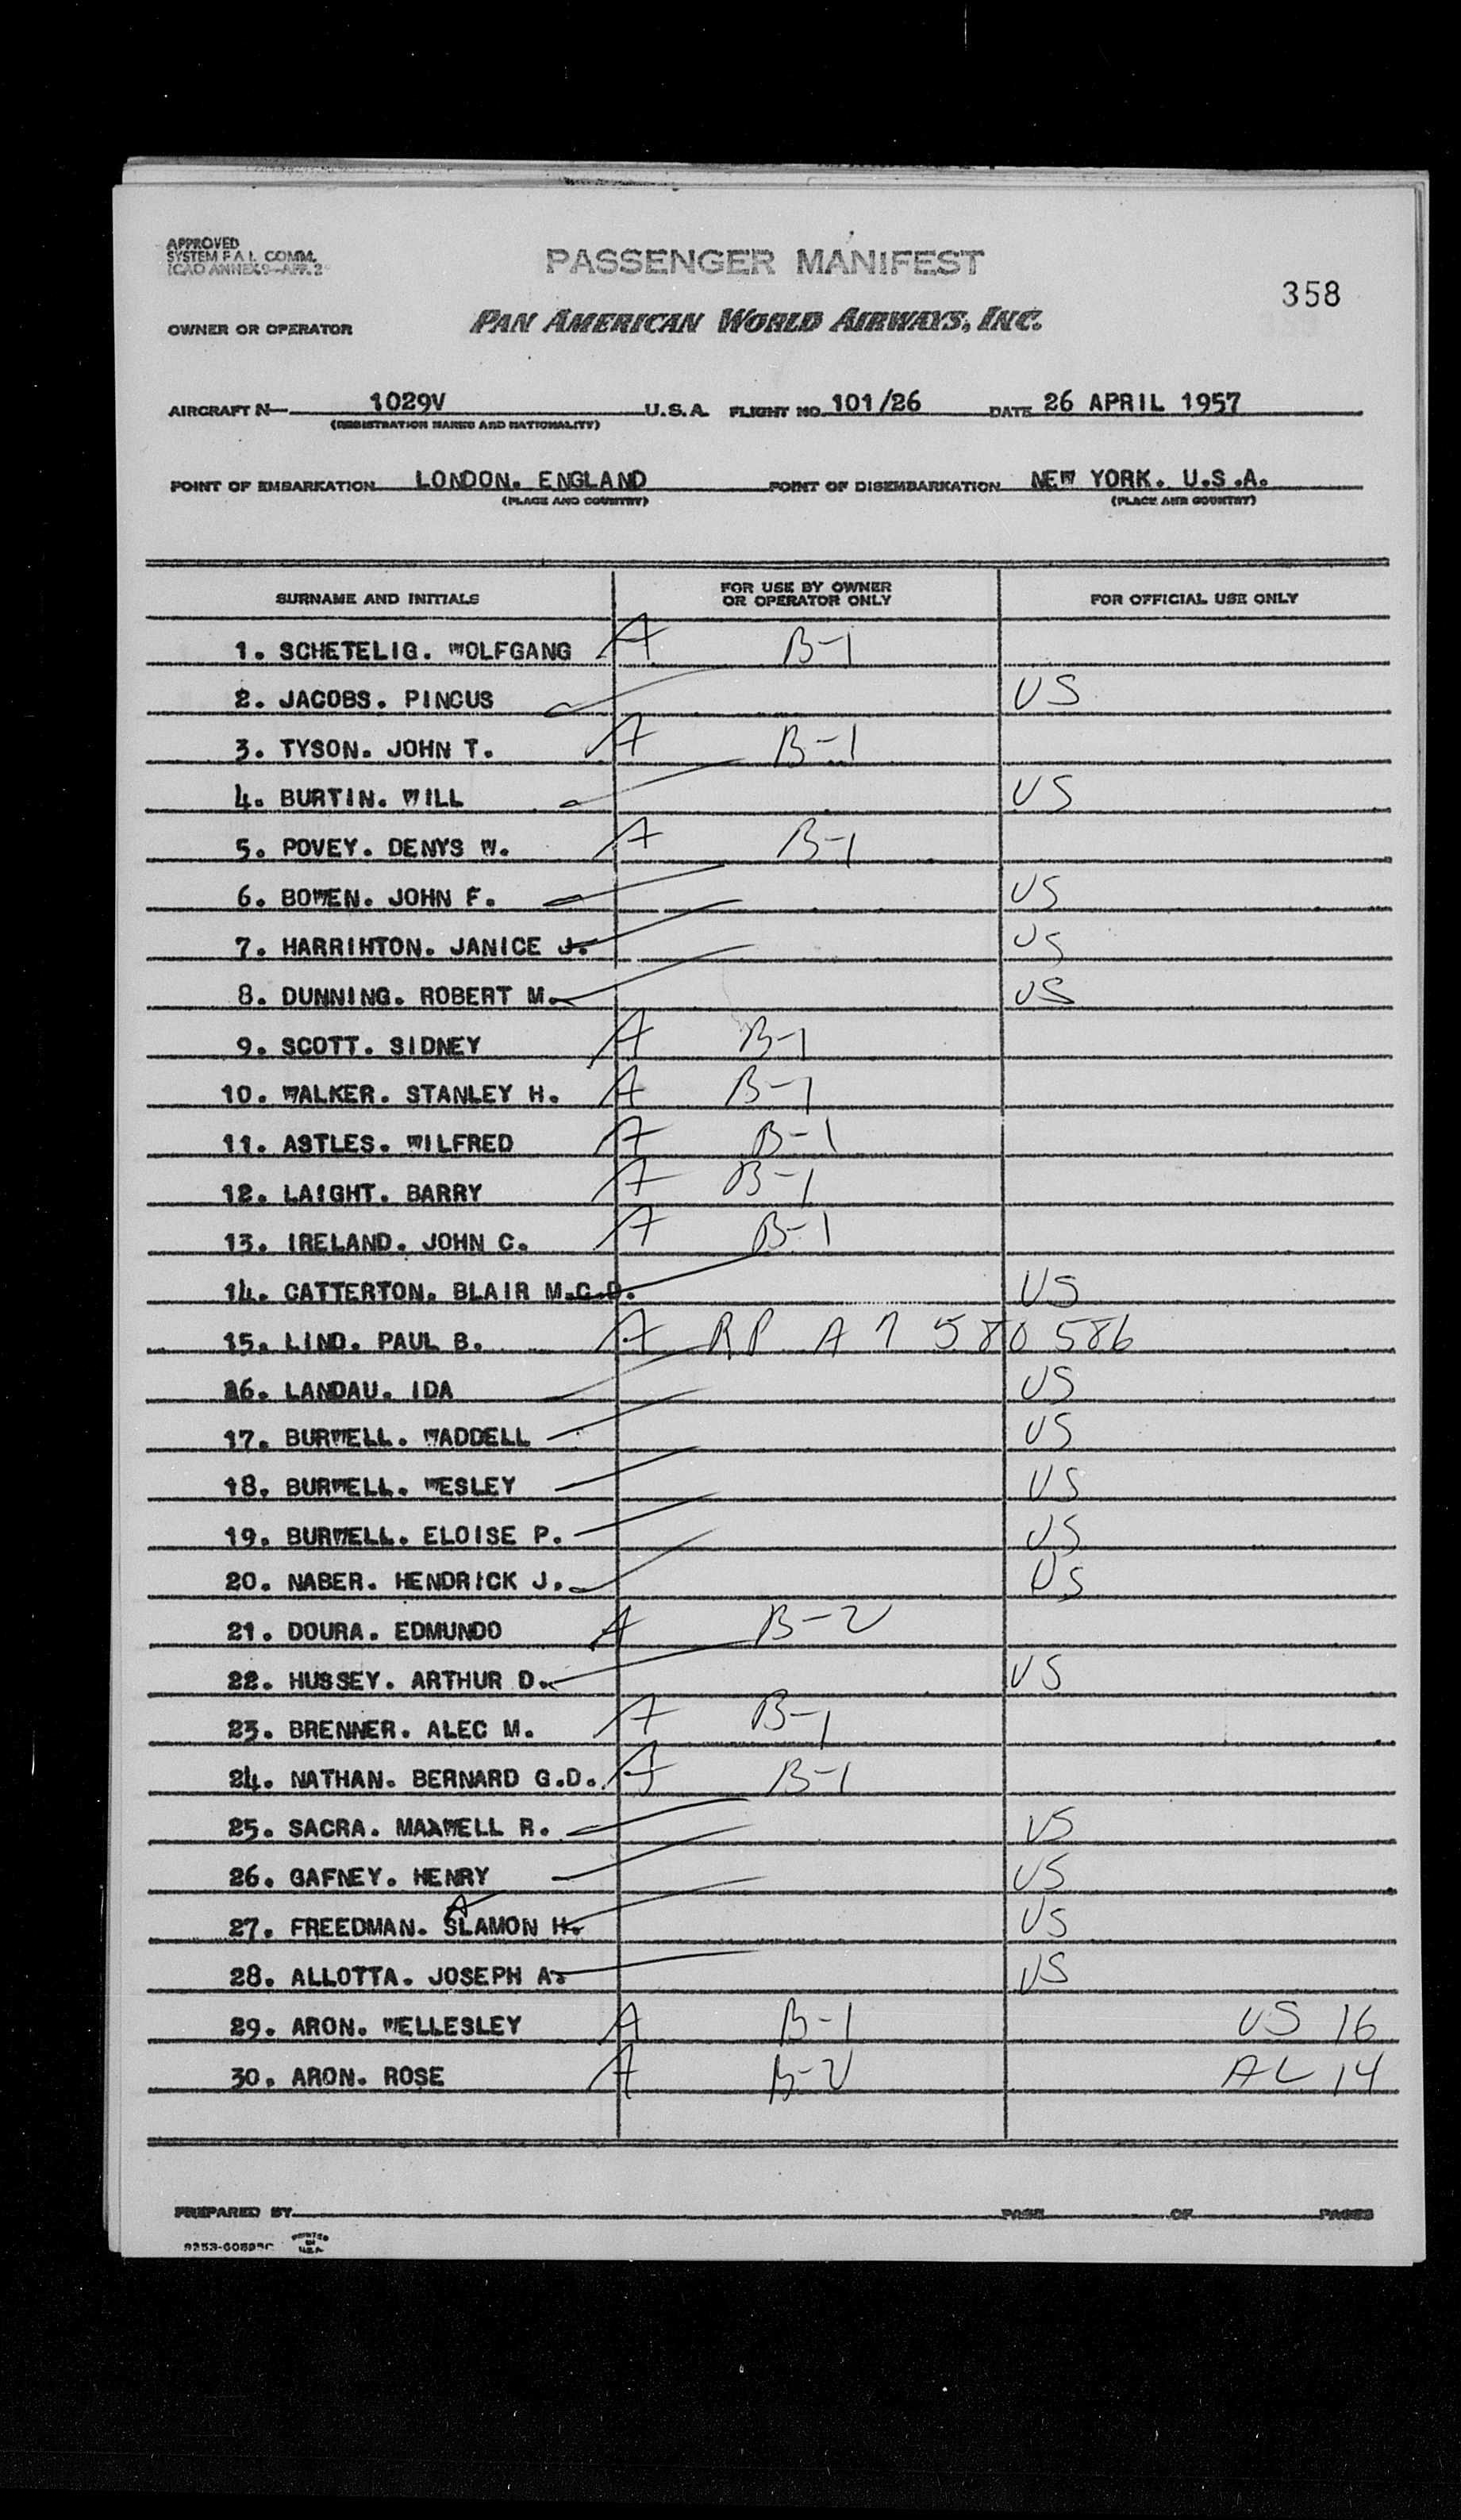 APPROVED
SYSTEM F A L COMM.
ICAO ANNEX 9-APP. 2
PASSENGER MANIFEST
358
OWNER OR OPERATOR PAN AMERICAN WORLD AIRWAYS, INC.
AIRCRAFT N- 1029V U.S.A. FLIGHT NO. 101/26 DATE 26 APRIL 1957
(REGISTRATION MARKS AND NATIONALITY)
POINT OF EMBARKATION LONDON. ENGLAND POINT OF DISEMBARKATION NEW YORK. U.S.A.
(PLACE AND COUNTRY) (PLACE AND COUNTRY)
SURNAME AND INITIALS FOR USE BY OWNER OR OPERATOR ONLY FOR OFFICIAL USE ONLY
1. SCHETELIG. WOLFGANG A B-1
2. JACOBS. PINCUS US
3. TYSON. JOHN T. A B-1
4. BURTIN. WILL US
5. POVEY. DENYS W. A B-1
6. BOWEN. JOHN F. US
7. HARRIHTON. JANICE J. US
8. DUNNING. ROBERT M. US
9. SCOTT. SIDNEY A B-1
10. WALKER. STANLEY H. A B-1
11. ASTLES. WILFRED A B-1
12. LAIGHT. BARRY A B-1
13. IRELAND. JOHN C. A B-1
14. CATTERTON. BLAIR M.C.D. US
15. LIND. PAUL B. A RP A 7 580 586
16. LANDAU. IDA US
17. BURWELL. WADDELL US
18. BURWELL. WESLEY US
19. BURWELL. ELOISE P. US
20. NABER. HENDRICK J. US
21. DOURA. EDMUNDO A B-2
22. HUSSEY. ARTHUR D. US
23. BRENNER. ALEC M. A B-1
24. NATHAN. BERNARD G.D. A B-1
25. SACRA. MAXWELL R. US
26. GAFNEY. HENRY US
27. FREEDMAN. SLAMON H. US
28. ALLOTTA. JOSEPH A. US
29. ARON. WELLESLEY A B-1 US 16
30. ARON. ROSE A B-2 AL 14
PREPARED BY PAGE OF PAGES
PRINTED IN U.S.A.